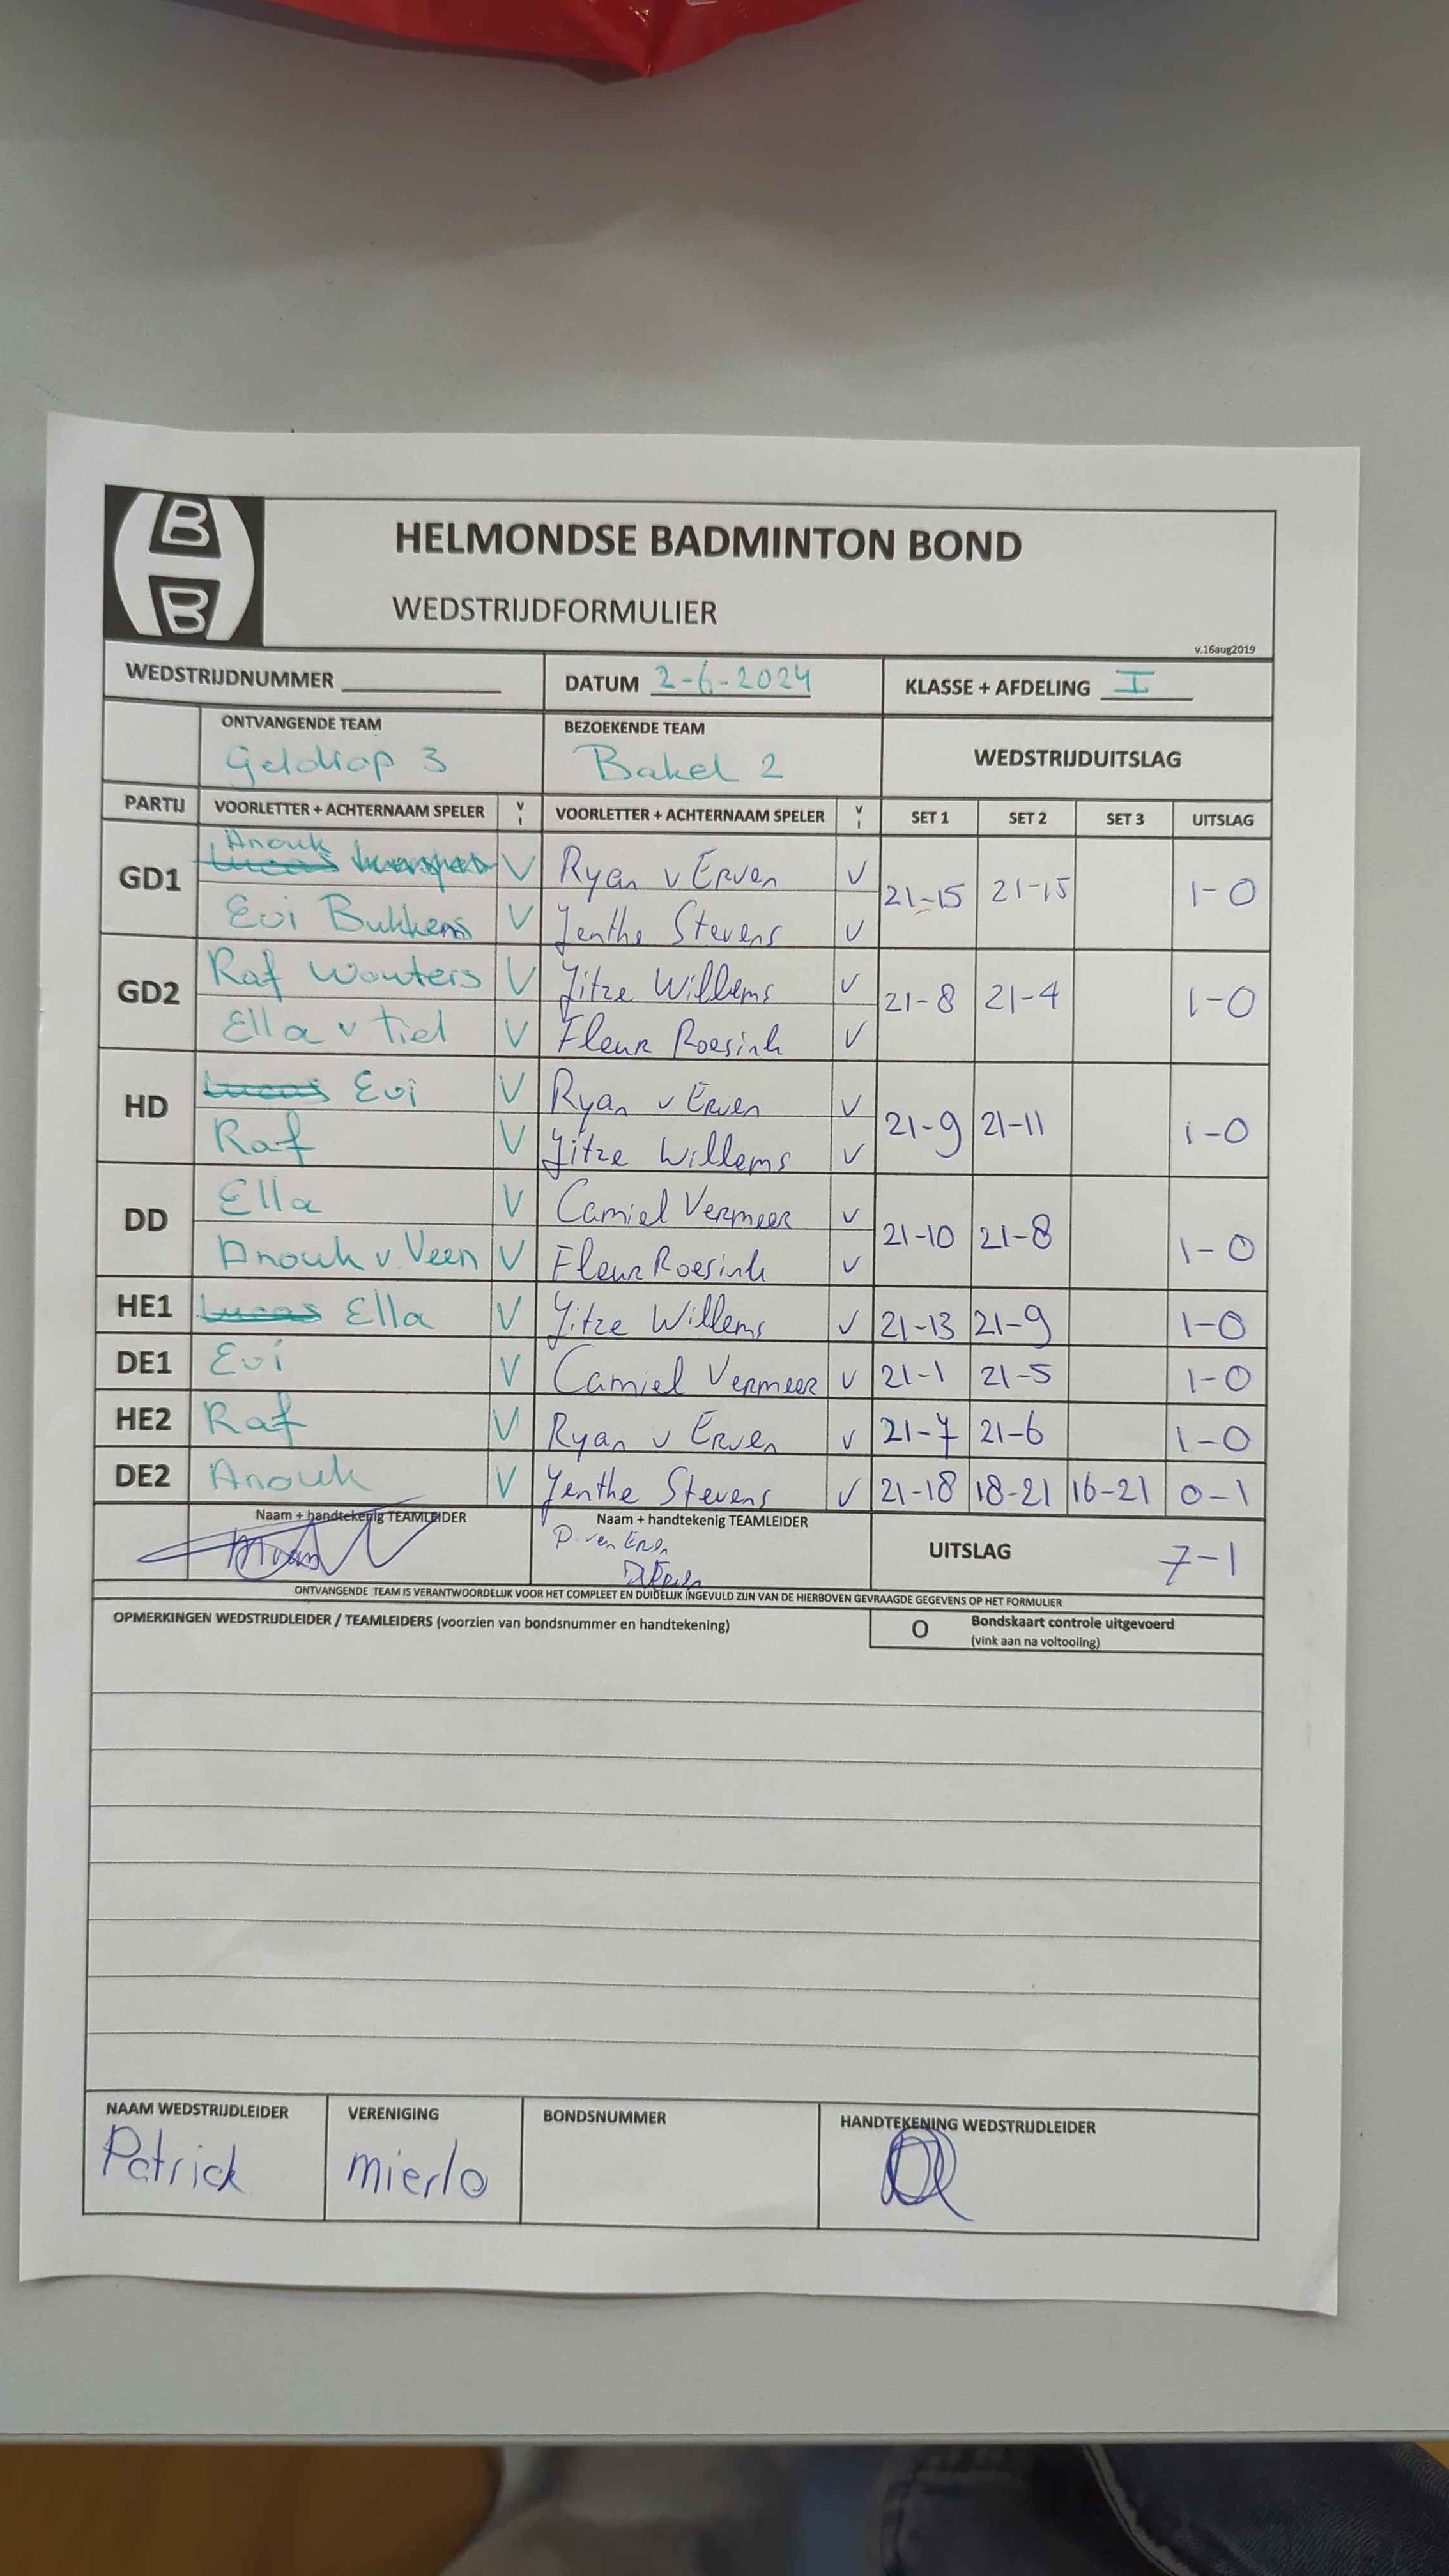 B
B
HELMONDSE BADMINTON BOND
WEDSTRIJDFORMULIER
v.16aug2019
WEDSTRIJDNUMMER DATUM 2-6-2024 KLASSE + AFDELING I
ONTVANGENDE TEAM BEZOEKENDE TEAM WEDSTRIJDUITSLAG
Geldrop 3 Bakel 2
PARTIJ VOORLETTER + ACHTERNAAM SPELER V VOORLETTER + ACHTERNAAM SPELER V SET 1 SET 2 SET 3 UITSLAG
Anouk
GD1 Lucas V Ryan v Erven V 21-15 21-15 1-0
Evi Bukkems V Yenthe Stevens V
GD2 Raf Wouters V Yitze Willems V 21-8 21-4 1-0
Ella v Tiel V Fleur Roesink V
HD Lucas Evi V Ryan v Erven V 21-9 21-11 1-0
Raf V Yitze Willems V
DD Ella V Camiel Vermeer V 21-10 21-8 1-0
Anouk v Veen V Fleur Roesink V
HE1 Lucas Ella V Yitze Willems V 21-13 21-9 1-0
DE1 Evi V Camiel Vermeer V 21-1 21-5 1-0
HE2 Raf V Ryan v Erven V 21-7 21-6 1-0
DE2 Anouk V Yenthe Stevens V 21-18 18-21 16-21 0-1
Naam + handtekenig TEAMLEIDER Naam + handtekenig TEAMLEIDER UITSLAG 7-1
ONTVANGENDE TEAM IS VERANTWOORDELIJK VOOR HET COMPLEET EN DUIDELIJK INGEVULD ZIJN VAN DE HIERBOVEN GEVRAAGDE GEGEVENS OP HET FORMULIER
OPMERKINGEN WEDSTRIJDLEIDER / TEAMLEIDERS (voorzien van bondsnummer en handtekening) O Bondskaart controle uitgevoerd
(vink aan na voltooiing)
NAAM WEDSTRIJDLEIDER VERENIGING BONDSNUMMER HANDTEKENING WEDSTRIJDLEIDER
Patrick mierlo